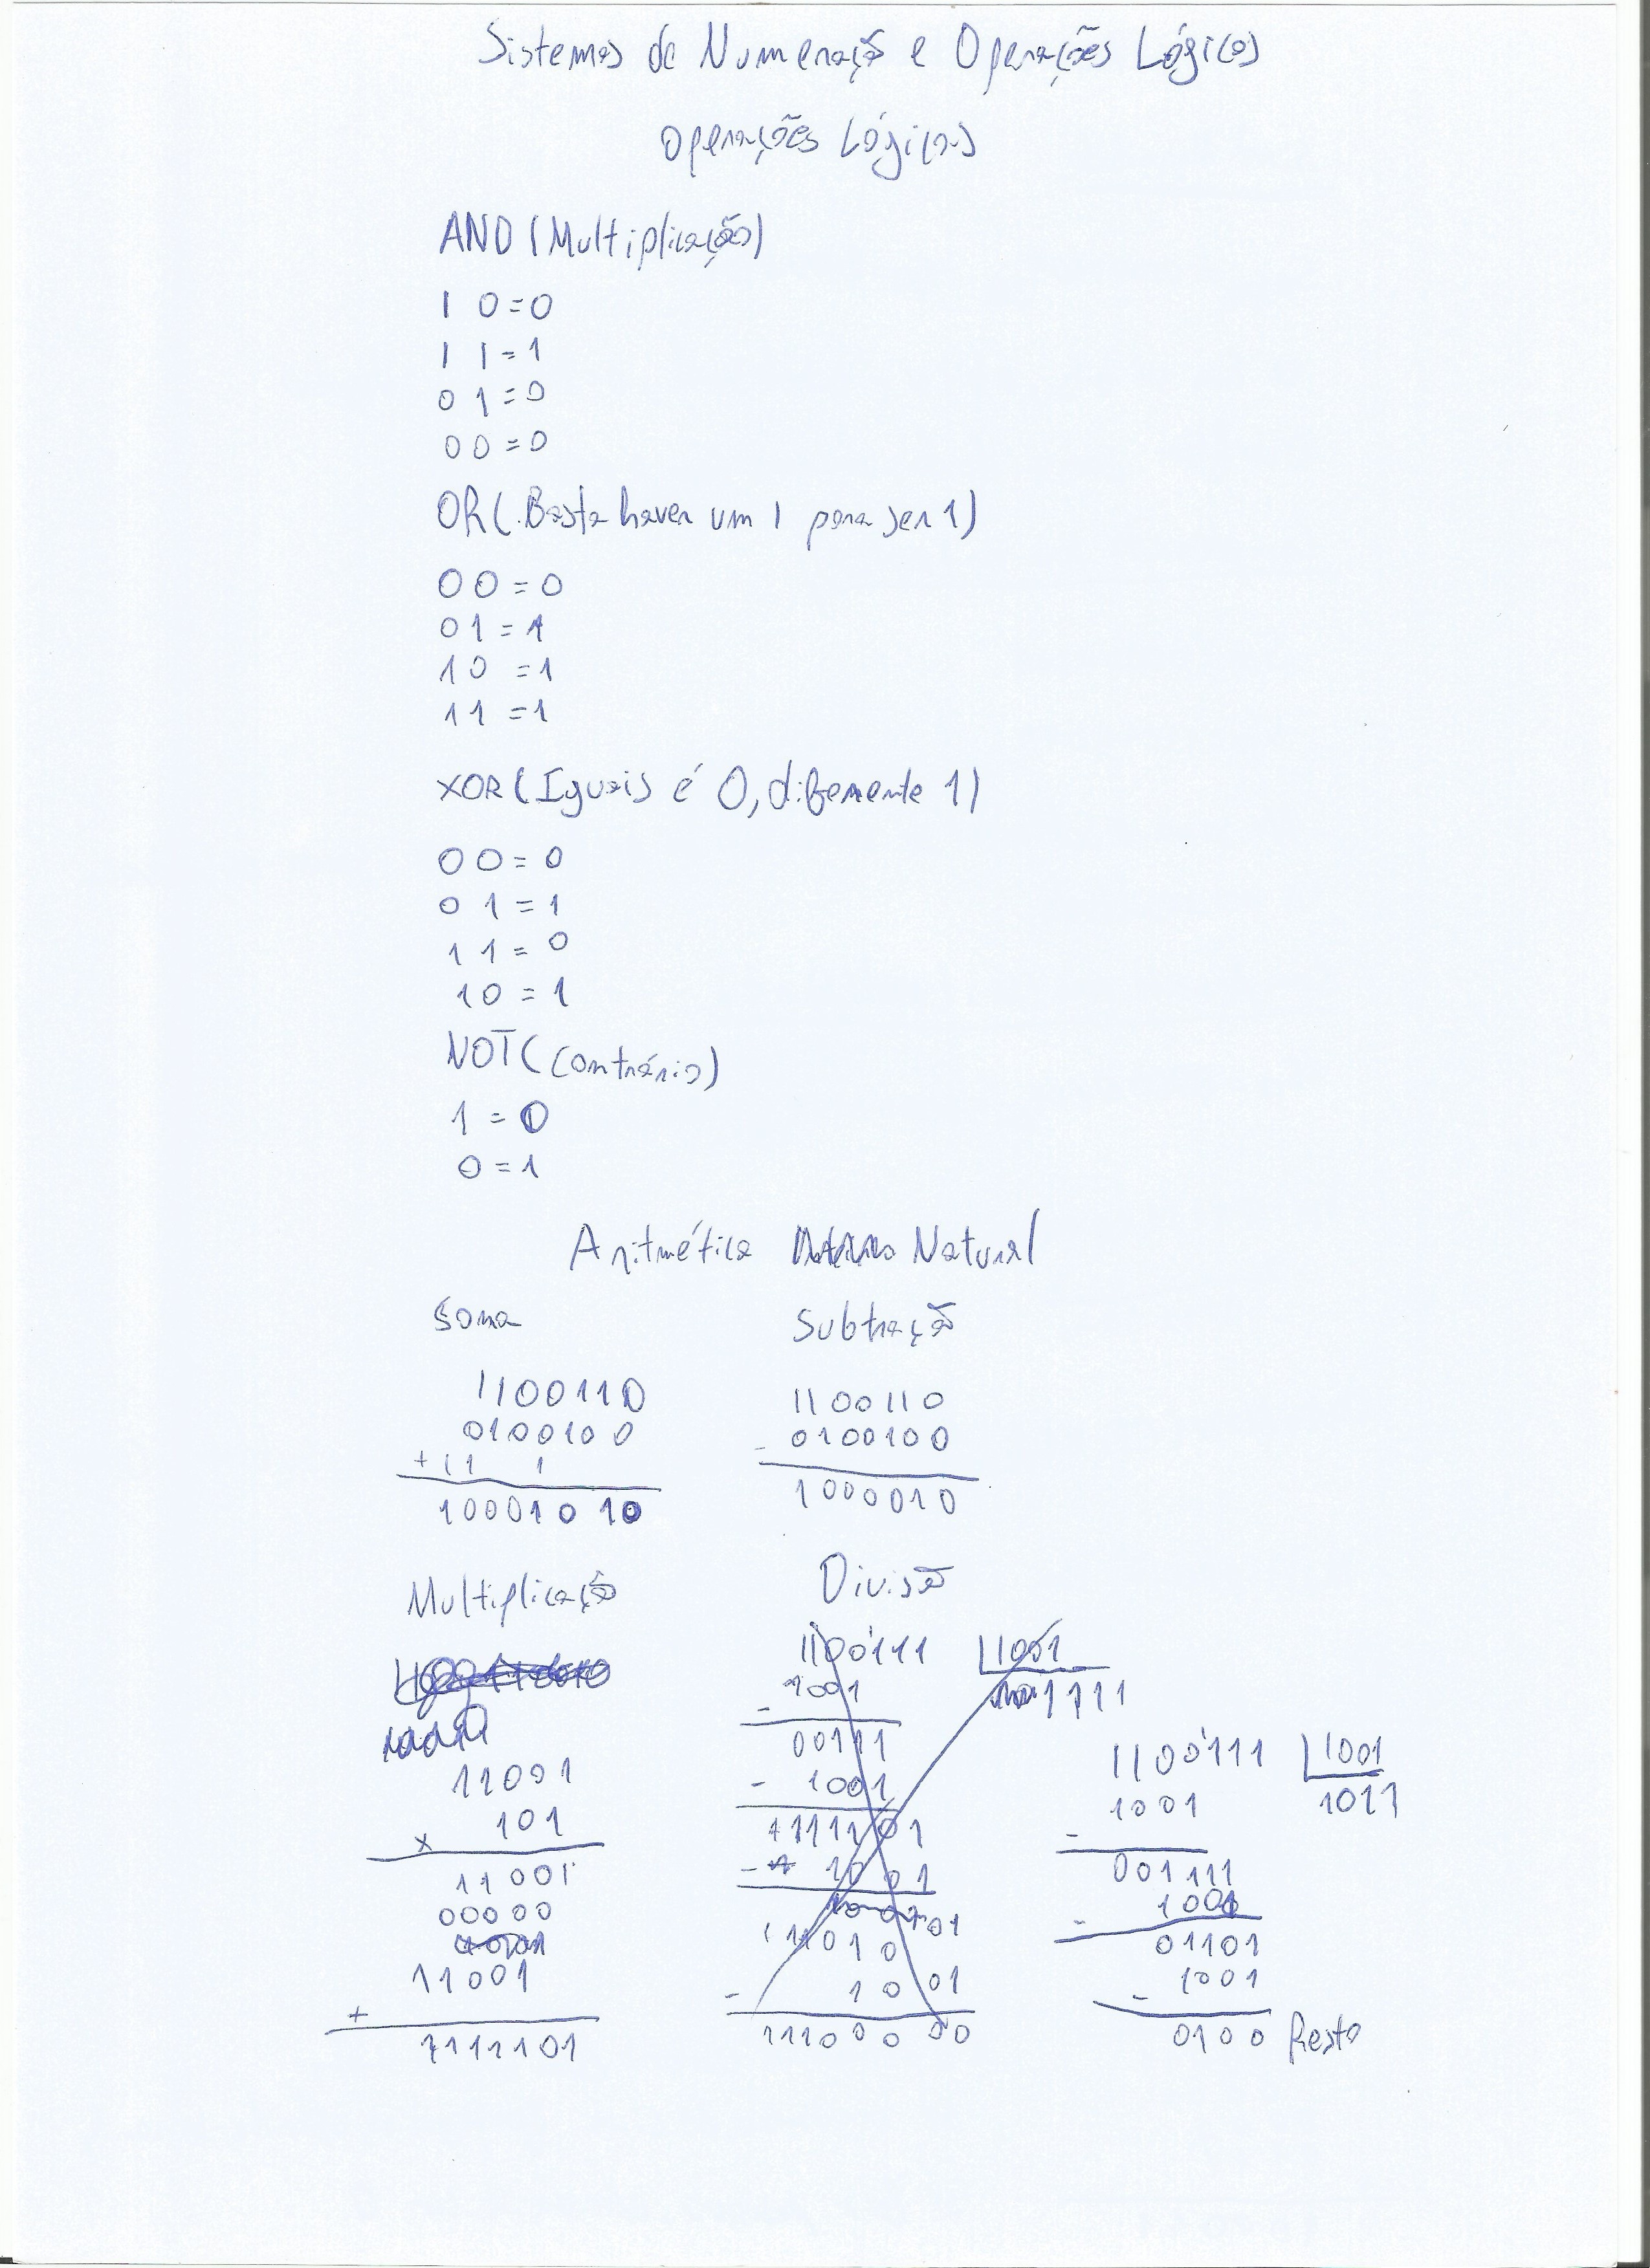 Sistemas de Numeração e Operações Lógicas
Operações Lógicas
AND (Multiplicação)
1 0 = 0
1 1 = 1
0 1 = 0
0 0 = 0
OR (Basta haver um 1 para ser 1)
0 0 = 0
0 1 = 1
1 0 = 1
1 1 = 1
XOR (Iguais é 0, diferente 1)
0 0 = 0
0 1 = 1
1 1 = 0
1 0 = 1
NOT (Contrário)
1 = 0
0 = 1
Aritmética Natural
Soma
1100110
0100100
+ 11 1
10001010
Subtração
1100110
- 0100100
1000010
Multiplicação
11001
x 101
11001
00000
11001
+
1111101
Divisão
1100111 1001
1001 1111
-
00111
- 1001
1111101
- 1001
01
111010
- 1001
11100000
1100111 1001
1001 1011
-
001111
- 1001
01101
- 1001
0100 Resto